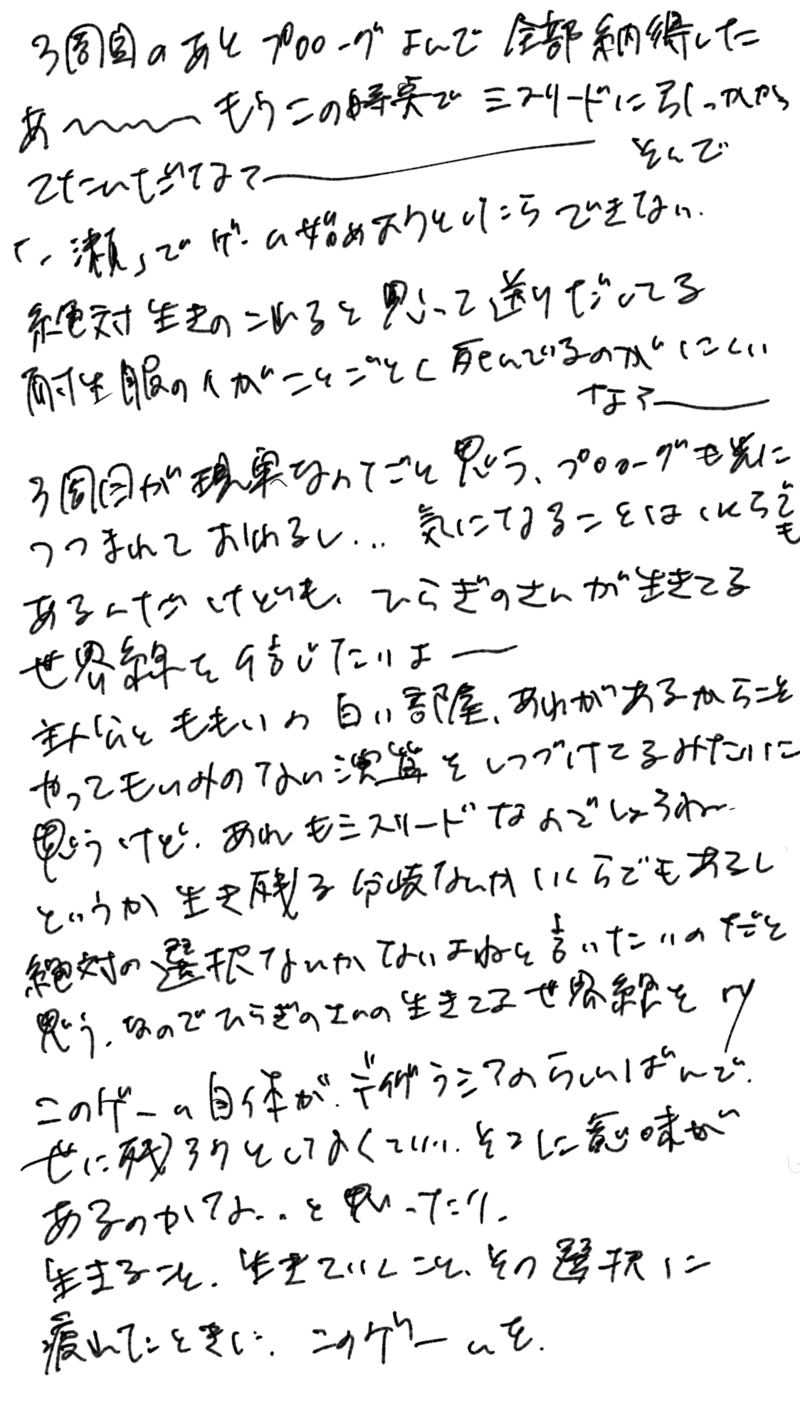 3周目のあとプロローグよんで全部納得した
あ〜〜〜もうこの時点でミスリードに引っかか
てたんだなて――― そんで
「一瀬」でゲーム始めようとしたらできない.
絶対生きのこれると思って送りだしてる
耐生服の人がことごとく死んでいるのがにくい
なぁ―
3周目が現実なんてごと思う、プロローグも先に
つつまれておわるし... 気になることはいくらでも
あるんだけども、ひらぎのさんが生きてる
世界線を信じたいよー
主人公とももいの白い部屋、あれがあるからこそ
やってもいみのない演算をしつづけてるみたいに
思うけど、あれもミスリードなのでしょうねー
というか生き残る分岐なんかいくらでもあるし
絶対の選択なんかないよねと言いたいのだと
思う、なのでひらぎのさんの生きてる世界線を ry
このゲーム自体が、
世に残ろうとしてなくていい、そこに意味が
あるのかな..と思ったり.
生まること、生きていくこと、その選択に
疲れたときに、このゲームを.